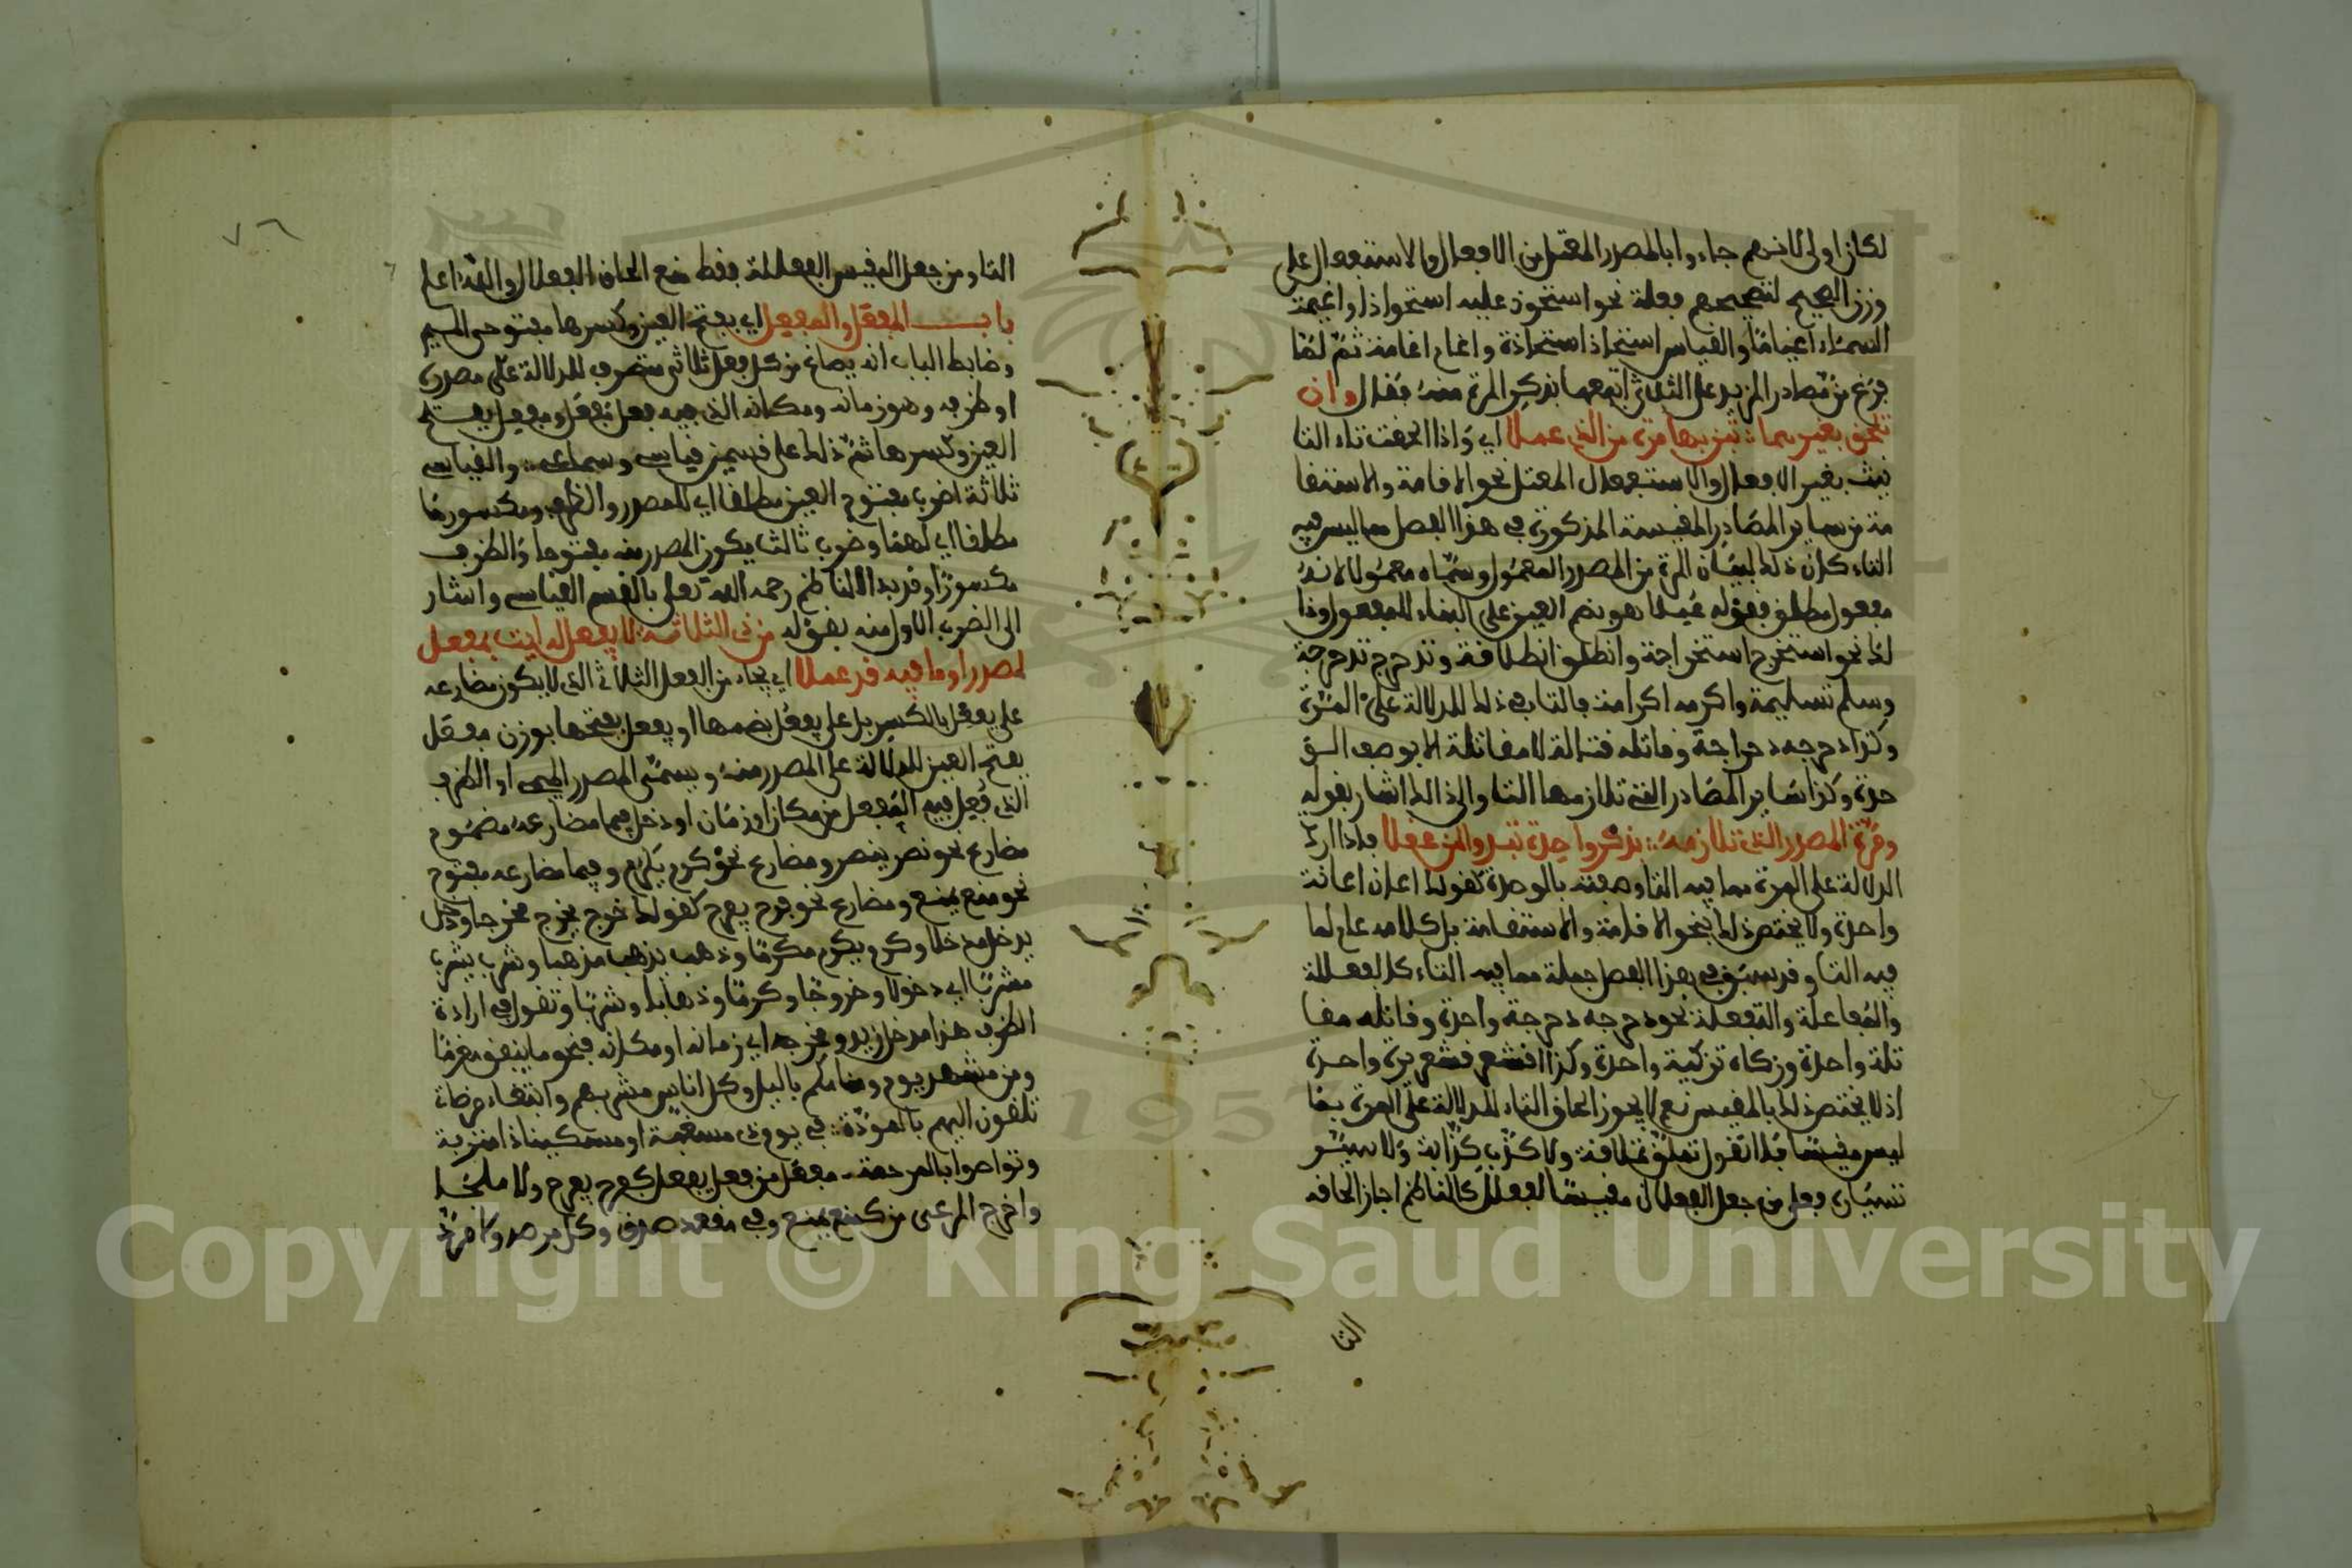 لكان اولى لانهم جاءوا بالمصدر المعتل من الافعال والاستفعال على
وزن الصحيح لتصحيحهم فعله نحو استحوذ عليه استحواذا واغيمت
السماء اغياما والقياس استحاذ استحاذة واغام اغامة ثم لما
فرغ من مصادر المزيد على الثلاثي اتبعها بذكر المرة منه فقال وان
تلحق بغيرهما تبن بها مرة من الذي عملا اي واذا الحقت تاء التا
نيث بغير الافعال والاستفعال المعتل نحو الاقامة والاستقا
مة من ساير المصادر المقيسة المذكورة في هذا الفصل مما ليس فيه
التاء كان ذلك لبيان المرة من المصدر المعمول وسماه معمولا لانه
مفعول مطلق فقوله عملا هو بضم العين على البناء للمفعول وذا
لك نحو استخرج استخراجة وانطلق انطلاقة وتدحرج تدحرجة
وسلم تسليمة واكرمه اكرامة فالتا في ذلك للدلالة على المرة
وكذا دحرجه دحراجة وقاتله قتالة لا مقاتلة الا بوصف الو
حدة وكذا ساير المصادر التي تلازمها التا والى ذالك اشار بقوله
ومرة المصدر الذي تلازمه بذكر واحدة تبدو لمن عقلا فاذا اردت
الدلالة على المرة مما فيه التا وصفته بالوحدة كقولك اعان اعانة
واحدة ولا يختص ذلك بنحو الاقامة والاستقامة بل كلامه عام لما
فيه التا وقد سبق في هذا الفصل جملة مما فيه التاء كالفعللة
والمفاعلة والتفعلة نحو دحرجه دحرجة واحدة وقاتله مقا
تلة واحدة وزكاه تزكية واحدة وكذا اقشعر قشعريرة واحدة
اذ لا يختص ذلك بالمقيس نعم لا يجوز الحاق التاء للدلالة على المرة بما
ليس مقيسا فلا تقول تملق تملاقة ولا كذب كذابة ولا سيـ
فعلى من جعل الفعلال مقيسا لفعلل كالناظم اجاز الحاقه
التا
٧٦
التا ومن جعل المقيس الفعللة فقط منع الحاق الفعلال والله اعلم
باب المفعل والمفعل اي بفتح العين وكسرها مفتوحي الميم
وضابط الباب انه يصاغ من كل فعل ثلاثي متصرف للدلالة على مصدره
او ظرفه وهو زمانه ومكانه الذي فيه فعل مفعل ومفعل بفتح
العين وكسرها ثم ذلك على قسمين قياسي وسماعي والقياسي
ثلاثة اضرب مفتوح العين مطلقا اي للمصدر والظرف ومكسورها
مطلقا اي لهما وضرب ثالث يكون المصدر منه مفتوحا والظرف
مكسورا وقد بدا الناظم رحمه الله تعالى بالقسم القياسي واشار
الى الضرب الاول منه بقوله من ذي الثلاثة لا يفعل له ايت بمفعل
لمصدر او ما فيه قد عملا اي يجاء من الفعل الثلاثي الذي لا يكون مضارعه
على يفعل بالكسر بل على يفعل بضمها او يفعل بفتحها بوزن مفعل
بفتح العين للدلالة على المصدر منه ويسمى المصدر الميمي او الظرف
الذي فعل فيه الفعل من مكان او زمان ودخل فيما مضارعه مضموم
مضارع نحو نصر ينصر ومضارع نحو كرم يكرم وفيما مضارعه مفتوح
نحو منع يمنع ومضارع نحو فرح يفرح كقولك خرج يخرج مخرجا ودخل
يدخل مدخلا وكرم يكرم مكرما وذهب يذهب مذهبا وشرب يشرب
مشربا اي دخولا وخروجا وكرما وذهابا وشربا وتقول في ارادة
الظرف هذا مدخل زيد ومخرجه اي زمانه او مكانه فنحو ما ينفق مغرما
ومن مشهد يوم ومنامكم بالليل وكل اناس مشربهم وابتغاء مرضات
تلقون اليهم بالمودة في يوم ذي مسغبة او مسكينا ذا متربة
وتواصوا بالمرحمة مفعل من فعل يفعل كفرح يفرح ولا ملجا
واخرج المرعى من كمنع يمنع وفي مقعد صدق وكل مرصد ولا مرد
Copyright © King Saud University
1957